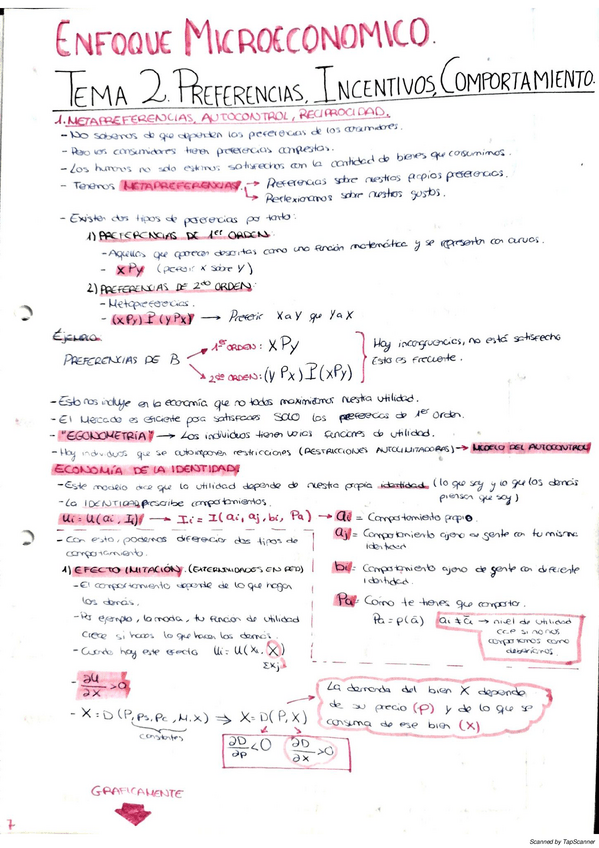 ENFOQUE MICROECONOMICO.
TEMA 2. PREFERENCIAS, INCENTIVOS, COMPORTAMIENTO.
1. METAPREFERENCIAS, AUTOCONTROL, RECIPROCIDAD.
- No sabemos de que dependen las preferencias de los consumidores.
- Pero los consumidores tienen preferencias complejas.
- Los humanos no solo estamos satisfechos con la cantidad de bienes que consumimos.
- Tenemos METAPREFERENCIAS → Preferencias sobre nuestras propias preferencias.
→ Reflexionamos sobre nuestros gustos.
- Existen dos tipos de preferencias por tanto:
1) PREFERENCIAS DE 1er ORDEN:
- Aquellas que aparecen descritas como una función matemática y se representan con curvas.
- xPy (preferir x sobre y)
2) PREFERENCIAS DE 2do ORDEN:
- Metapreferencias.
- (xPy) P (yPx) → Preferir X a Y que Y a X
Ejemplo
PREFERENCIAS DE B → 1er ORDEN: xPy
→ 2do ORDEN: (yPx) P (xPy)
Hay incongruencias, no está satisfecho
Esto es frecuente.
- Esto nos induje en la economía que no todos maximizamos nuestra utilidad.
- El Mercado es eficiente para satisfacer SOLO las preferencias de 1er Orden.
- "EGONOMETRÍA" → Los individuos tienen varias funciones de utilidad.
- Hay individuos que se autoimponen restricciones (RESTRICCIONES AUTOLIMITADORAS) → MODELO DEL AUTOCONTROL
ECONOMÍA DE LA IDENTIDAD
- Este modelo dice que la utilidad depende de nuestra propia identidad (lo que soy y lo que los demás piensan que soy)
- La IDENTIDAD prescribe comportamientos.
Ui = U(ai, Ii) → Ii = I(ai, aj, bi, Pa) → ai = Comportamiento propio.
aj = Comportamiento ajeno de gente con tu misma identidad
bi = Comportamiento ajeno de gente con diferente identidad.
Pa = Cómo te tienes que comportar.
Pa = p(ā) ai ≠ ā → nivel de utilidad cae si no nos comportamos como deberíamos.
- Con esto, podemos diferenciar dos tipos de comportamiento.
1) EFECTO IMITACIÓN. (EXTERNALIDADES EN RED)
- El comportamiento depende de lo que hagan los demás.
- Por ejemplo, la moda, tu función de utilidad crece si haces lo que hacen los demás.
- Cuando hay este efecto Ui = U(xi, X)
Σxj
- ∂U/∂X > 0
- X = D(P, Ps, Pc, M, X) ⇒ X = D(P, X)
constantes
∂D/∂p < 0 ∂D/∂x > 0
La demanda del bien X depende
de su precio (P) y de lo que se
consuma de ese bien (X)
GRAFICAMENTE
7
Scanned by TapScanner